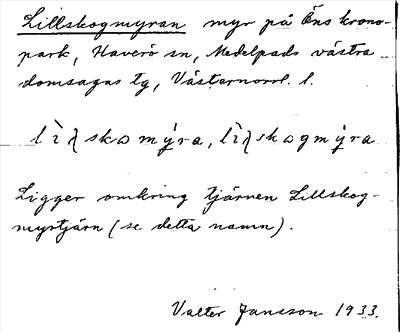 Lillskogmyran myr på Öns krono-
park, Haverö sn, Medelpads västra
domsagas tg, Västernorrl. l.
lìλskωmy̆ra, lìλskωgmy̆ra
Ligger omkring tjärnen Lillskog-
myrtjärn (se detta namn).
Valter Jansson 1933.